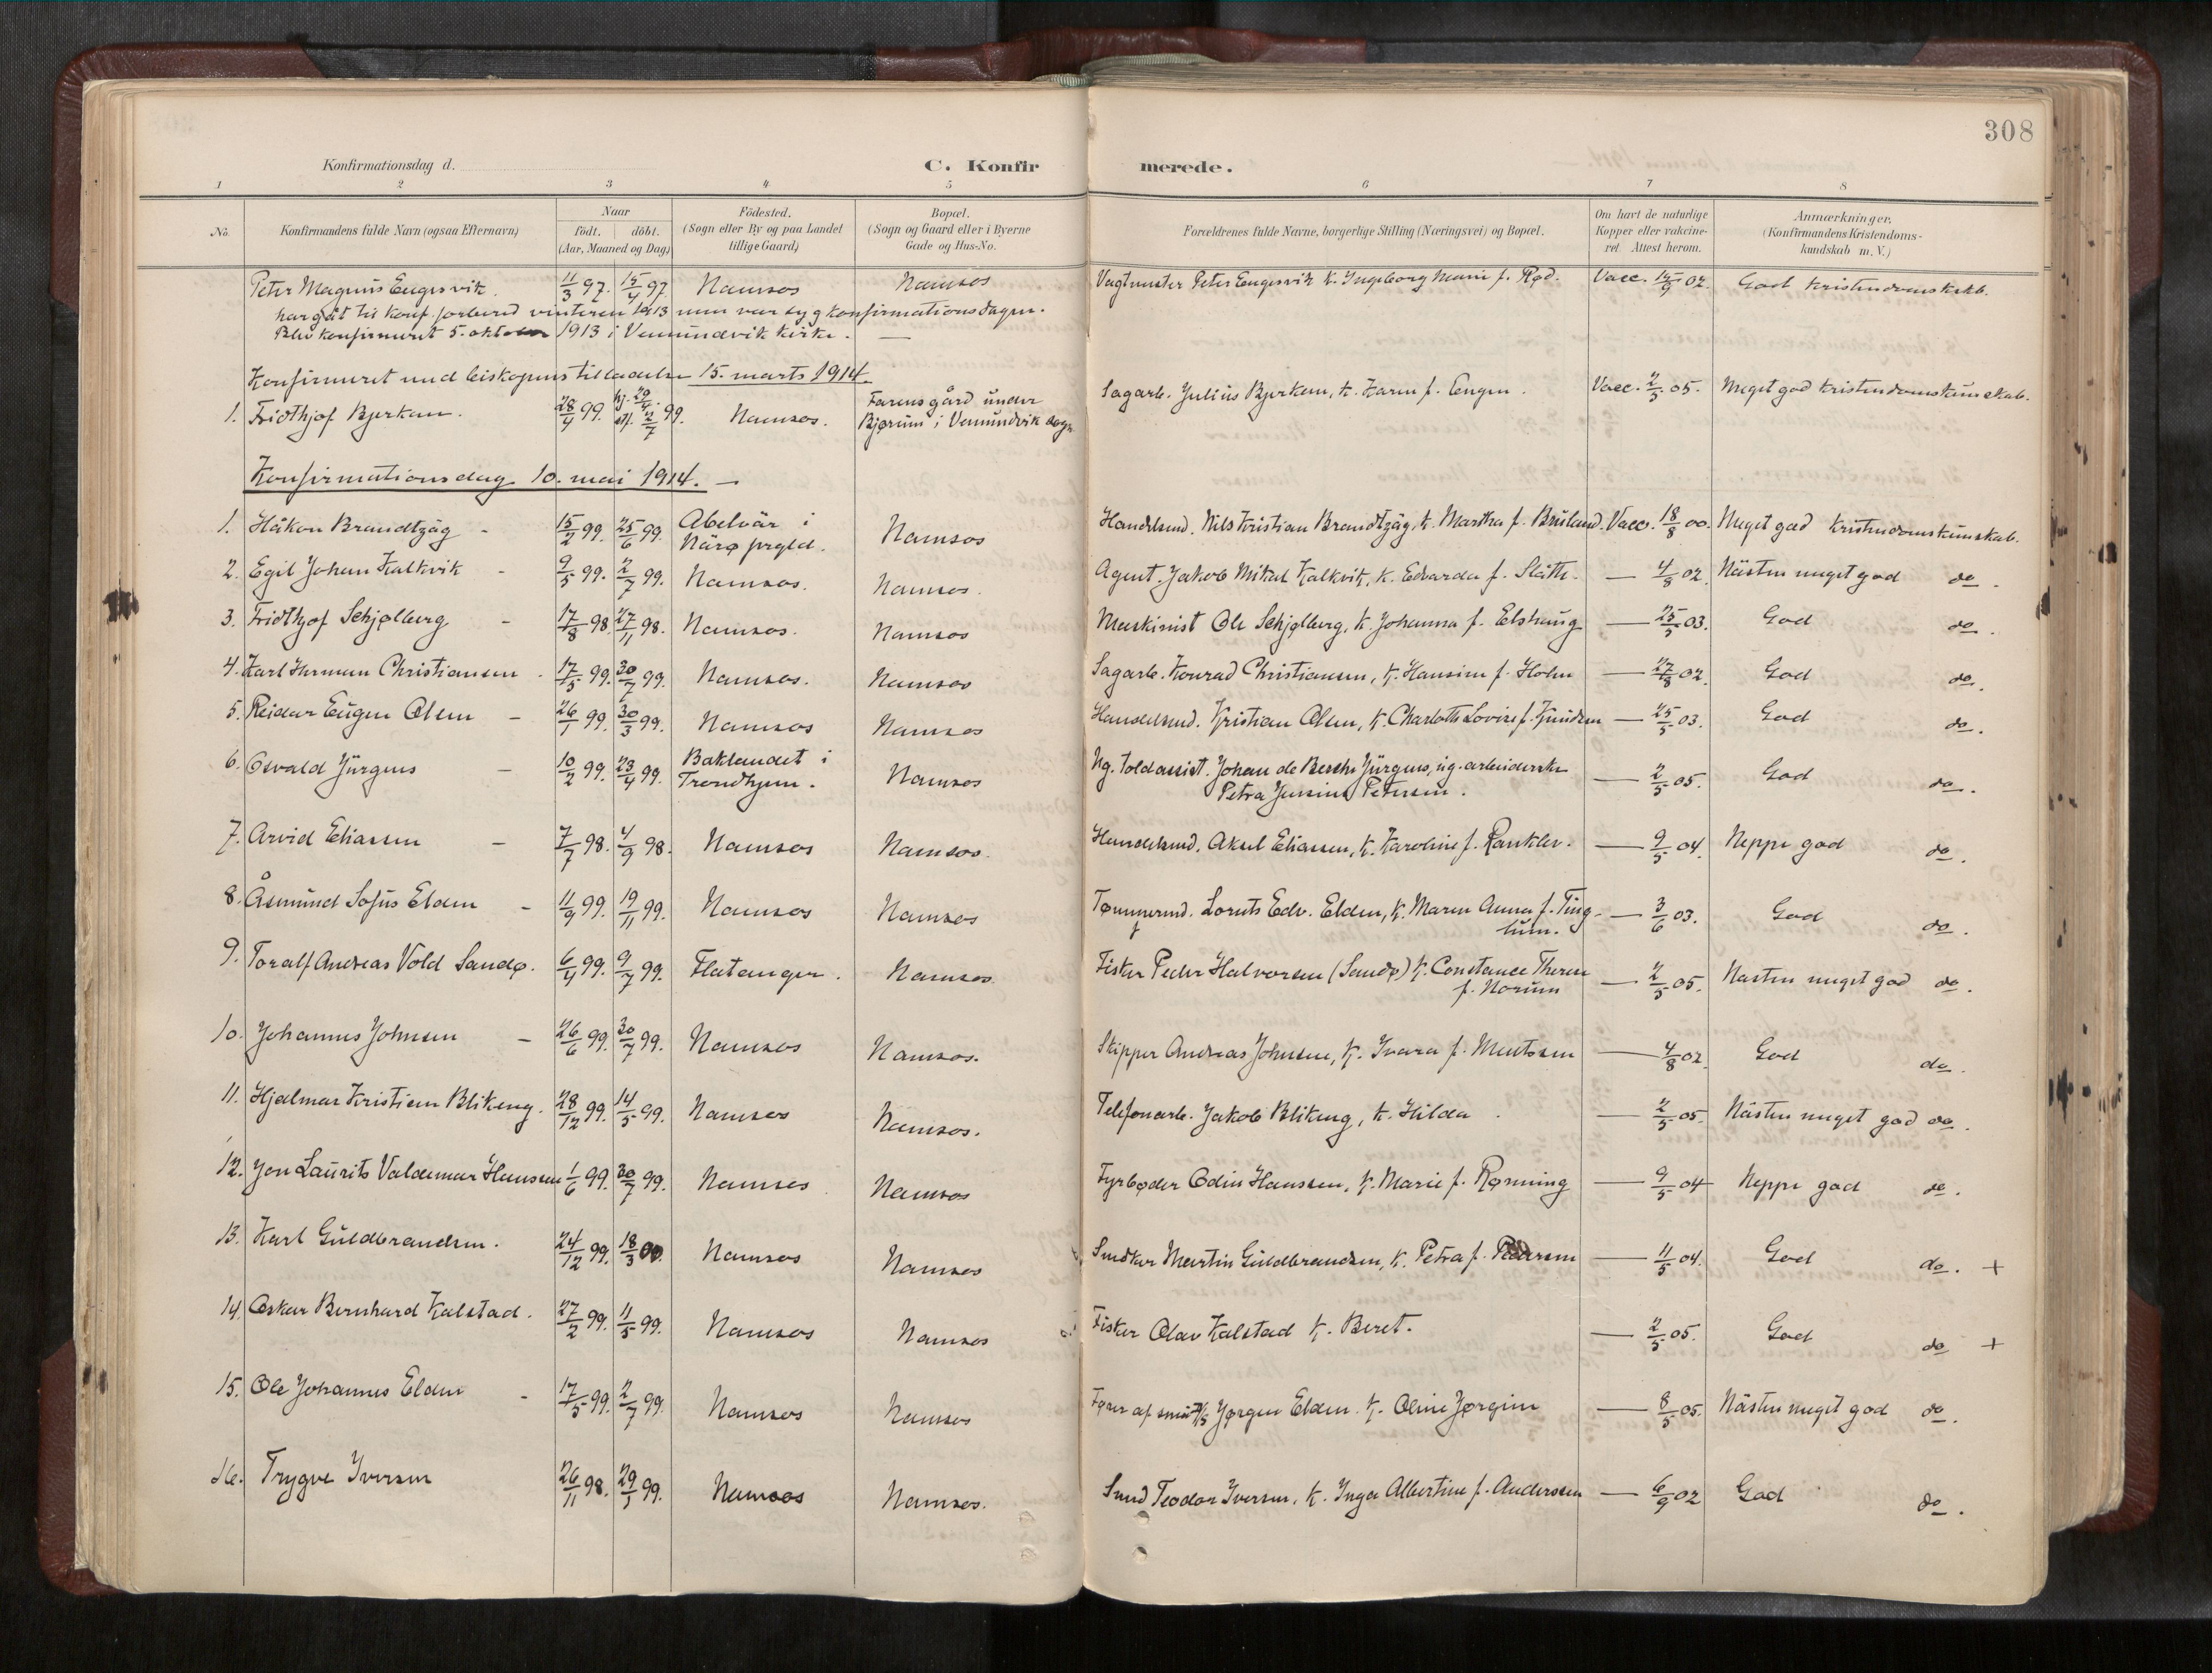 308
Konfirmationsdag d.
C. Konfirmerede.
1 2 3 4 5 6 7 8
No.
Konfirmandens fulde Navn (ogsaa Efternavn)
Naar
födt. döbt.
(Aar, Maaned og Dag)
Födested.
(Sogn eller By og paa Landet
tillige Gaard)
Bopæl.
(Sogn og Gaard eller i Byerne
Gade og Hus-No.
Forældrenes fulde Navne, borgerlige Stilling (Næringsvei) og Bopæl.
Om havt de naturlige
Kopper eller vakcine-
ret. Attest herom.
Anmærkninger.
(Konfirmandens Kristendoms-
kundskab m. V.)
Peter Magnus Engesvik. 11/3 97. 15/4 97 Namsos Namsos Vagtmester Peter Engesvik k. Ingeborg Marie f. Rød. Vacc. 15/9 02. God kristendomskskb.
har gåt til konf. forbered vinteren 1913 men var syg konfirmationsdagen.
Blev konfirmeret 5. oktober 1913 i Vemundvik kirke. —
Konfirmeret med biskopens tilladelse 15. marts 1914.
1. Fridthjof Bjerken. 28/4 99. hj. 29/4. stf. 2/7 99. Namsos. Farens gård under
Bjørum i Vemundvik sogn Sagarb. Julius Bjerken, k. Karen f. Engen. Vacc. 2/5 05. Meget god kristendomskunskab.
Konfirmationsdag 10. mai 1914. —
1. Håkon Brandtzäg - 15/2 99. 25/6 99. Abelvär i
Närø prgld. Namsos Handelsmd. Nils Kristian Brandtzäg, k. Martha f. Brüland. Vacc. 18/8 00. Meget god kristendomskunskab.
2. Egil Johan Kalkvik - 9/5 99. 2/7 99. Namsos. Namsos. Agent. Jakob Mikal Kalkvik, k. Edvarda f. Slåtte. — 4/8 02. Nästen meget god do.
3. Fridthjof Schjølberg - 17/8 98. 27/11 98. Namsos. Namsos Maskinist Ole Schjølberg, k. Johanna f. Elshaug — 25/5 03. God do.
4. Karl Herman Christiansen. 17/5 99. 30/7 99. Namsos. Namsos Sagarb. Konrad Christiansen, k. Hansine f. Holm — 27/8 02. God do.
5. Reidar Eugen Olsen - 26/1 99. 30/3 99. Namsos Namsos Handelsmd. Kristian Olsen, k. Charlotte Lovise f. Knudsen — 25/5 03. God do.
6. Osvald Jürgens - 10/2 99. 23/4 99. Baklandet i
Trondhjem. Namsos Ug. Toldassist. Johan de Besche Jürgens, ug. arbeiderske
Petra Jensine Petersen. — 2/5 05. God do.
7. Arvid Eliassen - 7/7 98. 4/9 98. Namsos Namsos. Handelsmd. Aksel Eliassen, k. Karoline f. Ranklev. — 9/5 04. Neppe god do.
8. Åsmund Sofus Elden - 11/9 99. 19/11 99. Namsos Namsos Tømmermd. Lorents Edv. Elden, k. Maren Anna f. Ting-
lum. — 3/6 03. God do.
9. Toralf Andreas Vold Sandø. 6/4 99. 9/7 99. Flatanger. Namsos. Fisker Peder Halvorsen (Sandø) k. Constance Therese
f. Norum — 2/5 05. Nästen meget god do.
10. Johannes Johnsen - 26/6 99. 30/7 99. Namsos Namsos. Skipper Andreas Johnsen, k. Ivara f. Mentzsen — 4/8 02. God do.
11. Hjalmar Kristian Blikeng. 28/12 99. 14/5 99. Namsos Namsos. Telefonarb. Jakob Blikeng, k. Hilda. — 2/5 05. Nästen meget god do.
12. Jon Laurits Valdemar Hanssen 1/6 99. 30/7 99. Namsos Namsos Fyrbøder Odin Hanssen, k. Marie f. Rønning — 9/5 04 Neppe god do.
13. Karl Guldbrandsen. 24/12 99. 18/3 00. Namsos Namsos Snedker Martin Guldbrandsen, k. Petra f. Pedersen — 11/5 04. God do. +
14. Oskar Bernhard Kalstad. 27/2 99. 11/5 99. Namsos Namsos Fisker Olav Kalstad k. Beret. — 2/5 05. God do +
15. Ole Johannes Elden - 17/5 99. 2/7 99. Namsos Namsos Fører af små D/S Jørgen Elden. k. Oline Jørgine — 8/5 05. Nästen meget god do.
16. Trygve Iversen 26/11 98. 29/1 99. Namsos Namsos. Smed Teodor Iversen, k. Inga Albertine f. Anderssen — 6/9 02 God do.